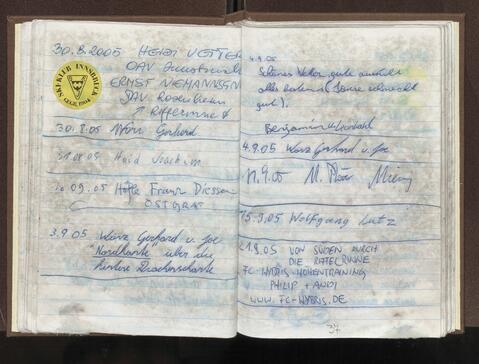 30.8.2005 HEIDI VETTER
ÖAV Innsbruck
ERNST NIEMANNSEN
DAV Rosenheim
↗ Riffelrinne ↓
SKIKLUB INNSBRUCK
30.8.05 Gerhard
31.08.05 Haid Joachim
10.09.05 Franz Diessen
OSTGRAT
3.9.05 Wörz Gerhard u. Joe
"Nordkante" über die
hintere Drachenscharte
4.9.05
Schönes Wetter, gute Aussicht
alles bestens (Sonne scheint
gut).
Benjamin u. Leonhard
4.9.05 Wörz Gerhard u. Joe
11.9.05 M.
15.9.05 Wolfgang Lutz
21.9.05 VON SÜDEN DURCH
DIE RIFFELRINNE
FC-WYBRIS-HÖHENTRAINING
PHILIP + ANDI
WWW.FC-WYBRIS.DE
37